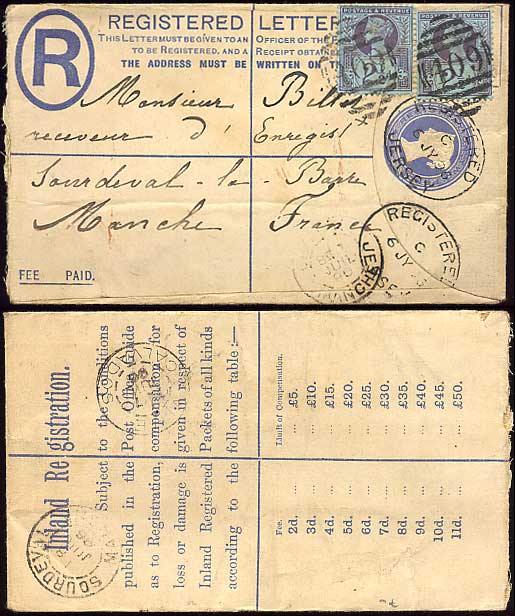 R
REGISTERED LETTER
THIS LETTER MUST BE GIVEN TO AN OFFICER OF THE
TO BE REGISTERED, AND A RECEIPT OBTAI
THE ADDRESS MUST BE WRITTEN ON
POSTAGE & REVENUE
POSTAGE & REVENUE
409
Monsieur Billet
receveur d' Enregist
Sourdeval-la-Barre
Manche France
FEE PAID.
REGISTERED
C
JERSEY
REGISTERE
C
6 JY
JERSEY
MANCHE
Inland Registration.
Subject to the conditions
published in the Post Office Guide
as to Registration, compensation for
loss or damage is given in respect of
Inland Registered Packets of all kinds
according to the following table:—
Fee. Limit of Compensation.
2d. ... ... £5.
3d. ... ... £10.
4d. ... ... £15.
5d. ... ... £20.
6d. ... ... £25.
7d. ... ... £30.
8d. ... ... £35.
9d. ... ... £40.
10d. ... ... £45.
11d. ... ... £50.
SOURDEVAL